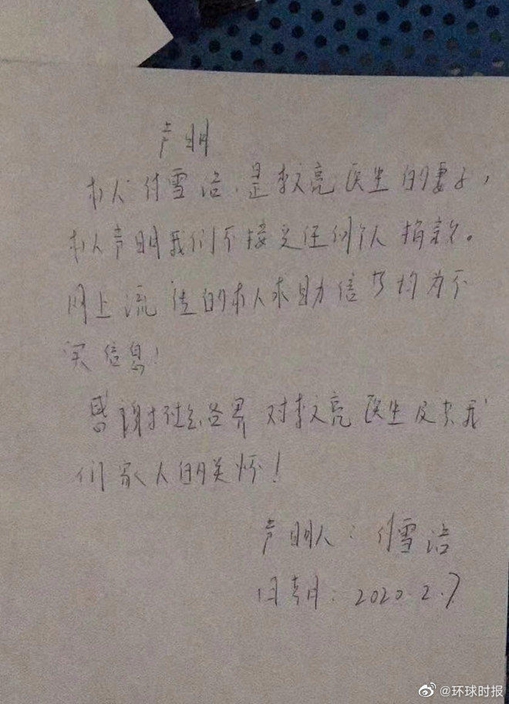 声明
本人付雪洁,是李文亮医生的妻子,
本人声明我们不接受任何个人捐款。
网上流传的本人求助信息均为不
实信息!
感谢社会各界对李文亮医生及其我
们家人的关怀!
声明人:付雪洁
日期:2020.2.7
@环球时报